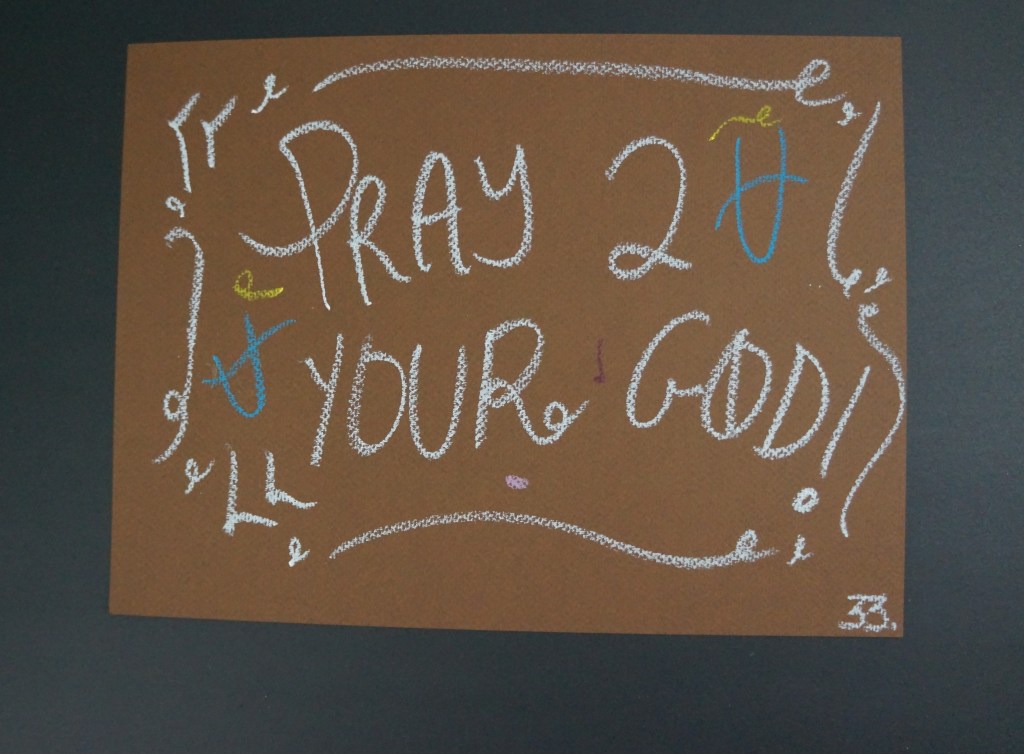 PRAY 2
YOUR GOD!
33.